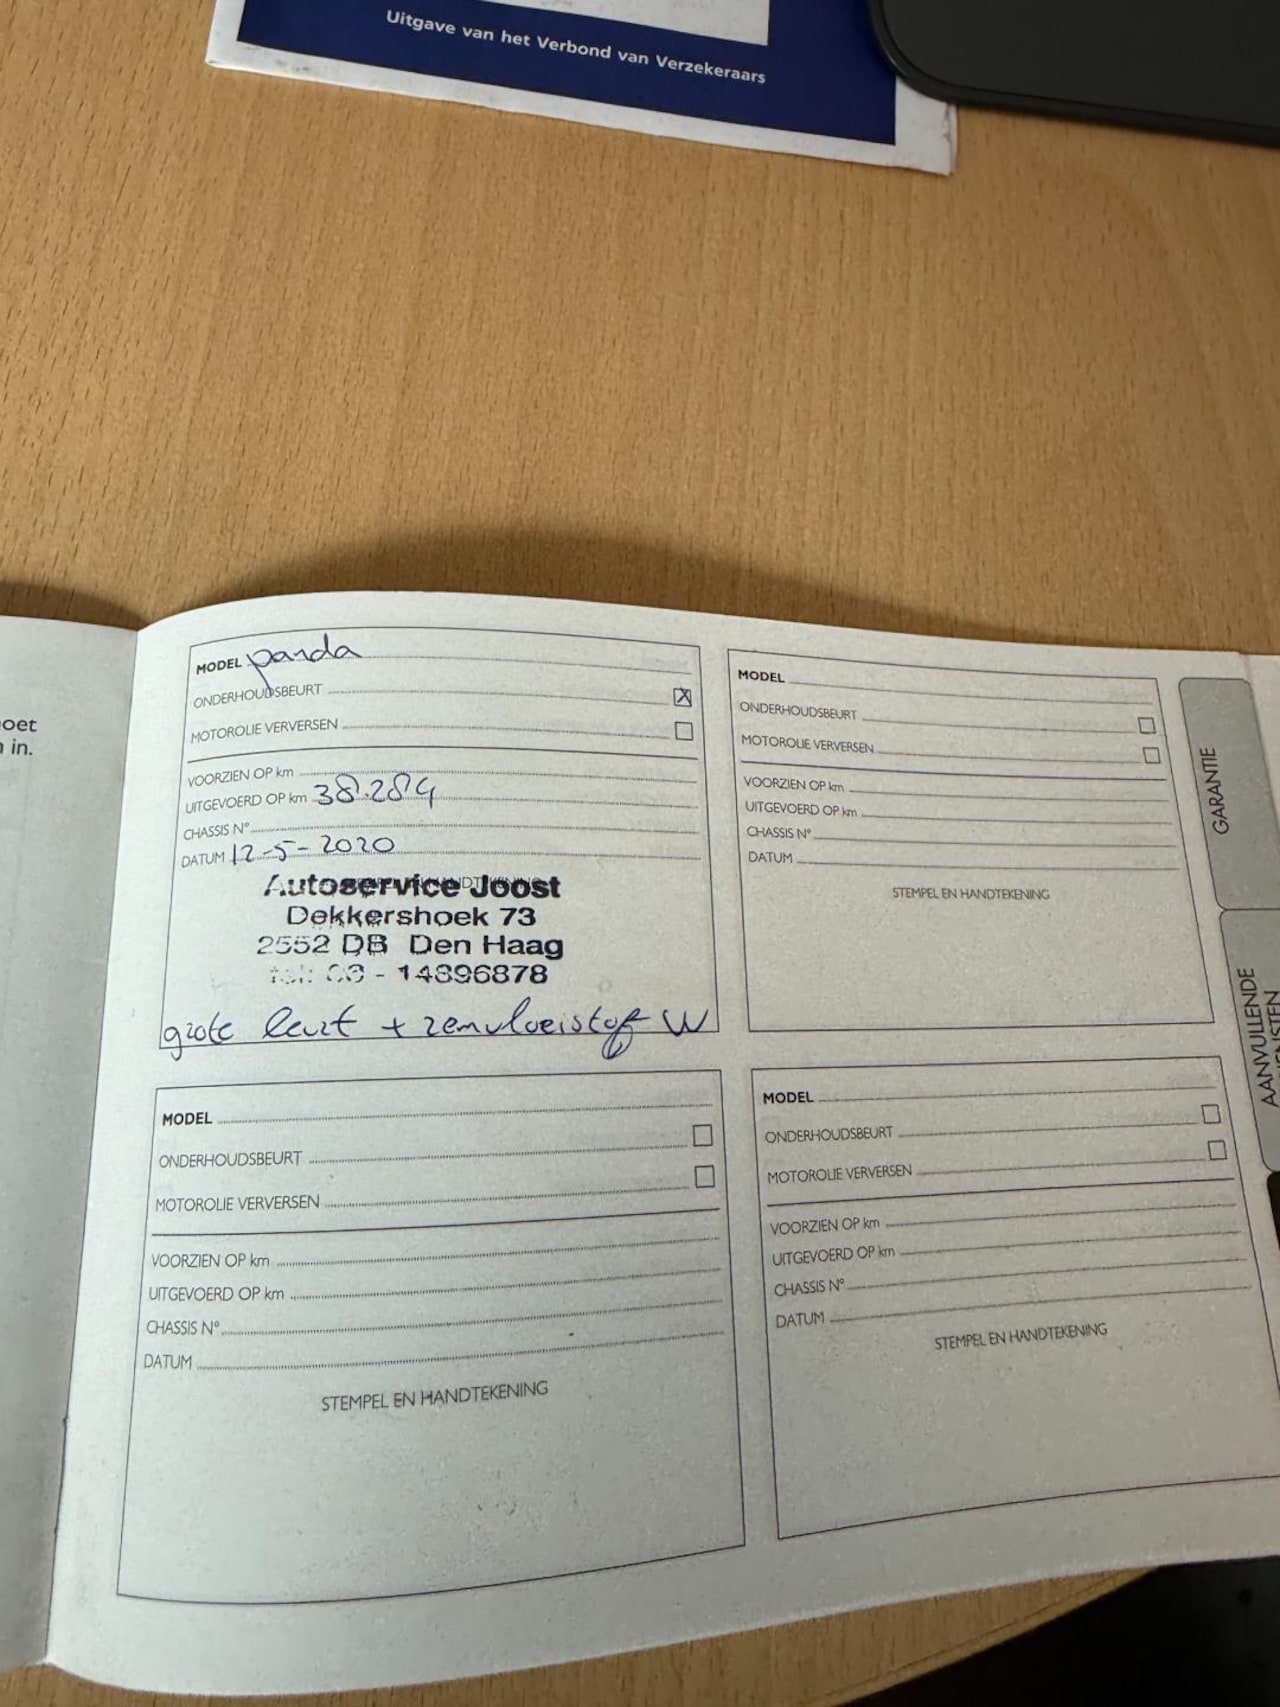 Uitgave van het Verbond van Verzekeraars
oet
in.
MODEL panda
ONDERHOUDSBEURT X
MOTOROLIE VERVERSEN
VOORZIEN OP km
UITGEVOERD OP km 38.284
CHASSIS N°
DATUM 12-5-2020
Autoservice Joost
Dekkershoek 73
2552 DB Den Haag
- 14896878
grote beurt + remvloeistof W
MODEL
ONDERHOUDSBEURT
MOTOROLIE VERVERSEN
VOORZIEN OP km
UITGEVOERD OP km
CHASSIS N°
DATUM
STEMPEL EN HANDTEKENING
MODEL
ONDERHOUDSBEURT
MOTOROLIE VERVERSEN
VOORZIEN OP km
UITGEVOERD OP km
CHASSIS N°
DATUM
STEMPEL EN HANDTEKENING
MODEL
ONDERHOUDSBEURT
MOTOROLIE VERVERSEN
VOORZIEN OP km
UITGEVOERD OP km
CHASSIS N°
DATUM
STEMPEL EN HANDTEKENING
GARANTIE
AANVULLENDE